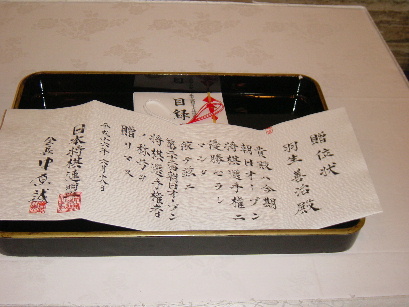 目録
贈位状
羽生善治殿
貴殿ハ今期
朝日オープン
将棋選手権ニ
優勝セラレ
マシタ
依テ茲ニ
朝日オープン
将棋選手権者
ノ称号ヲ
贈リマス
日本将棋連盟
会長 中原誠